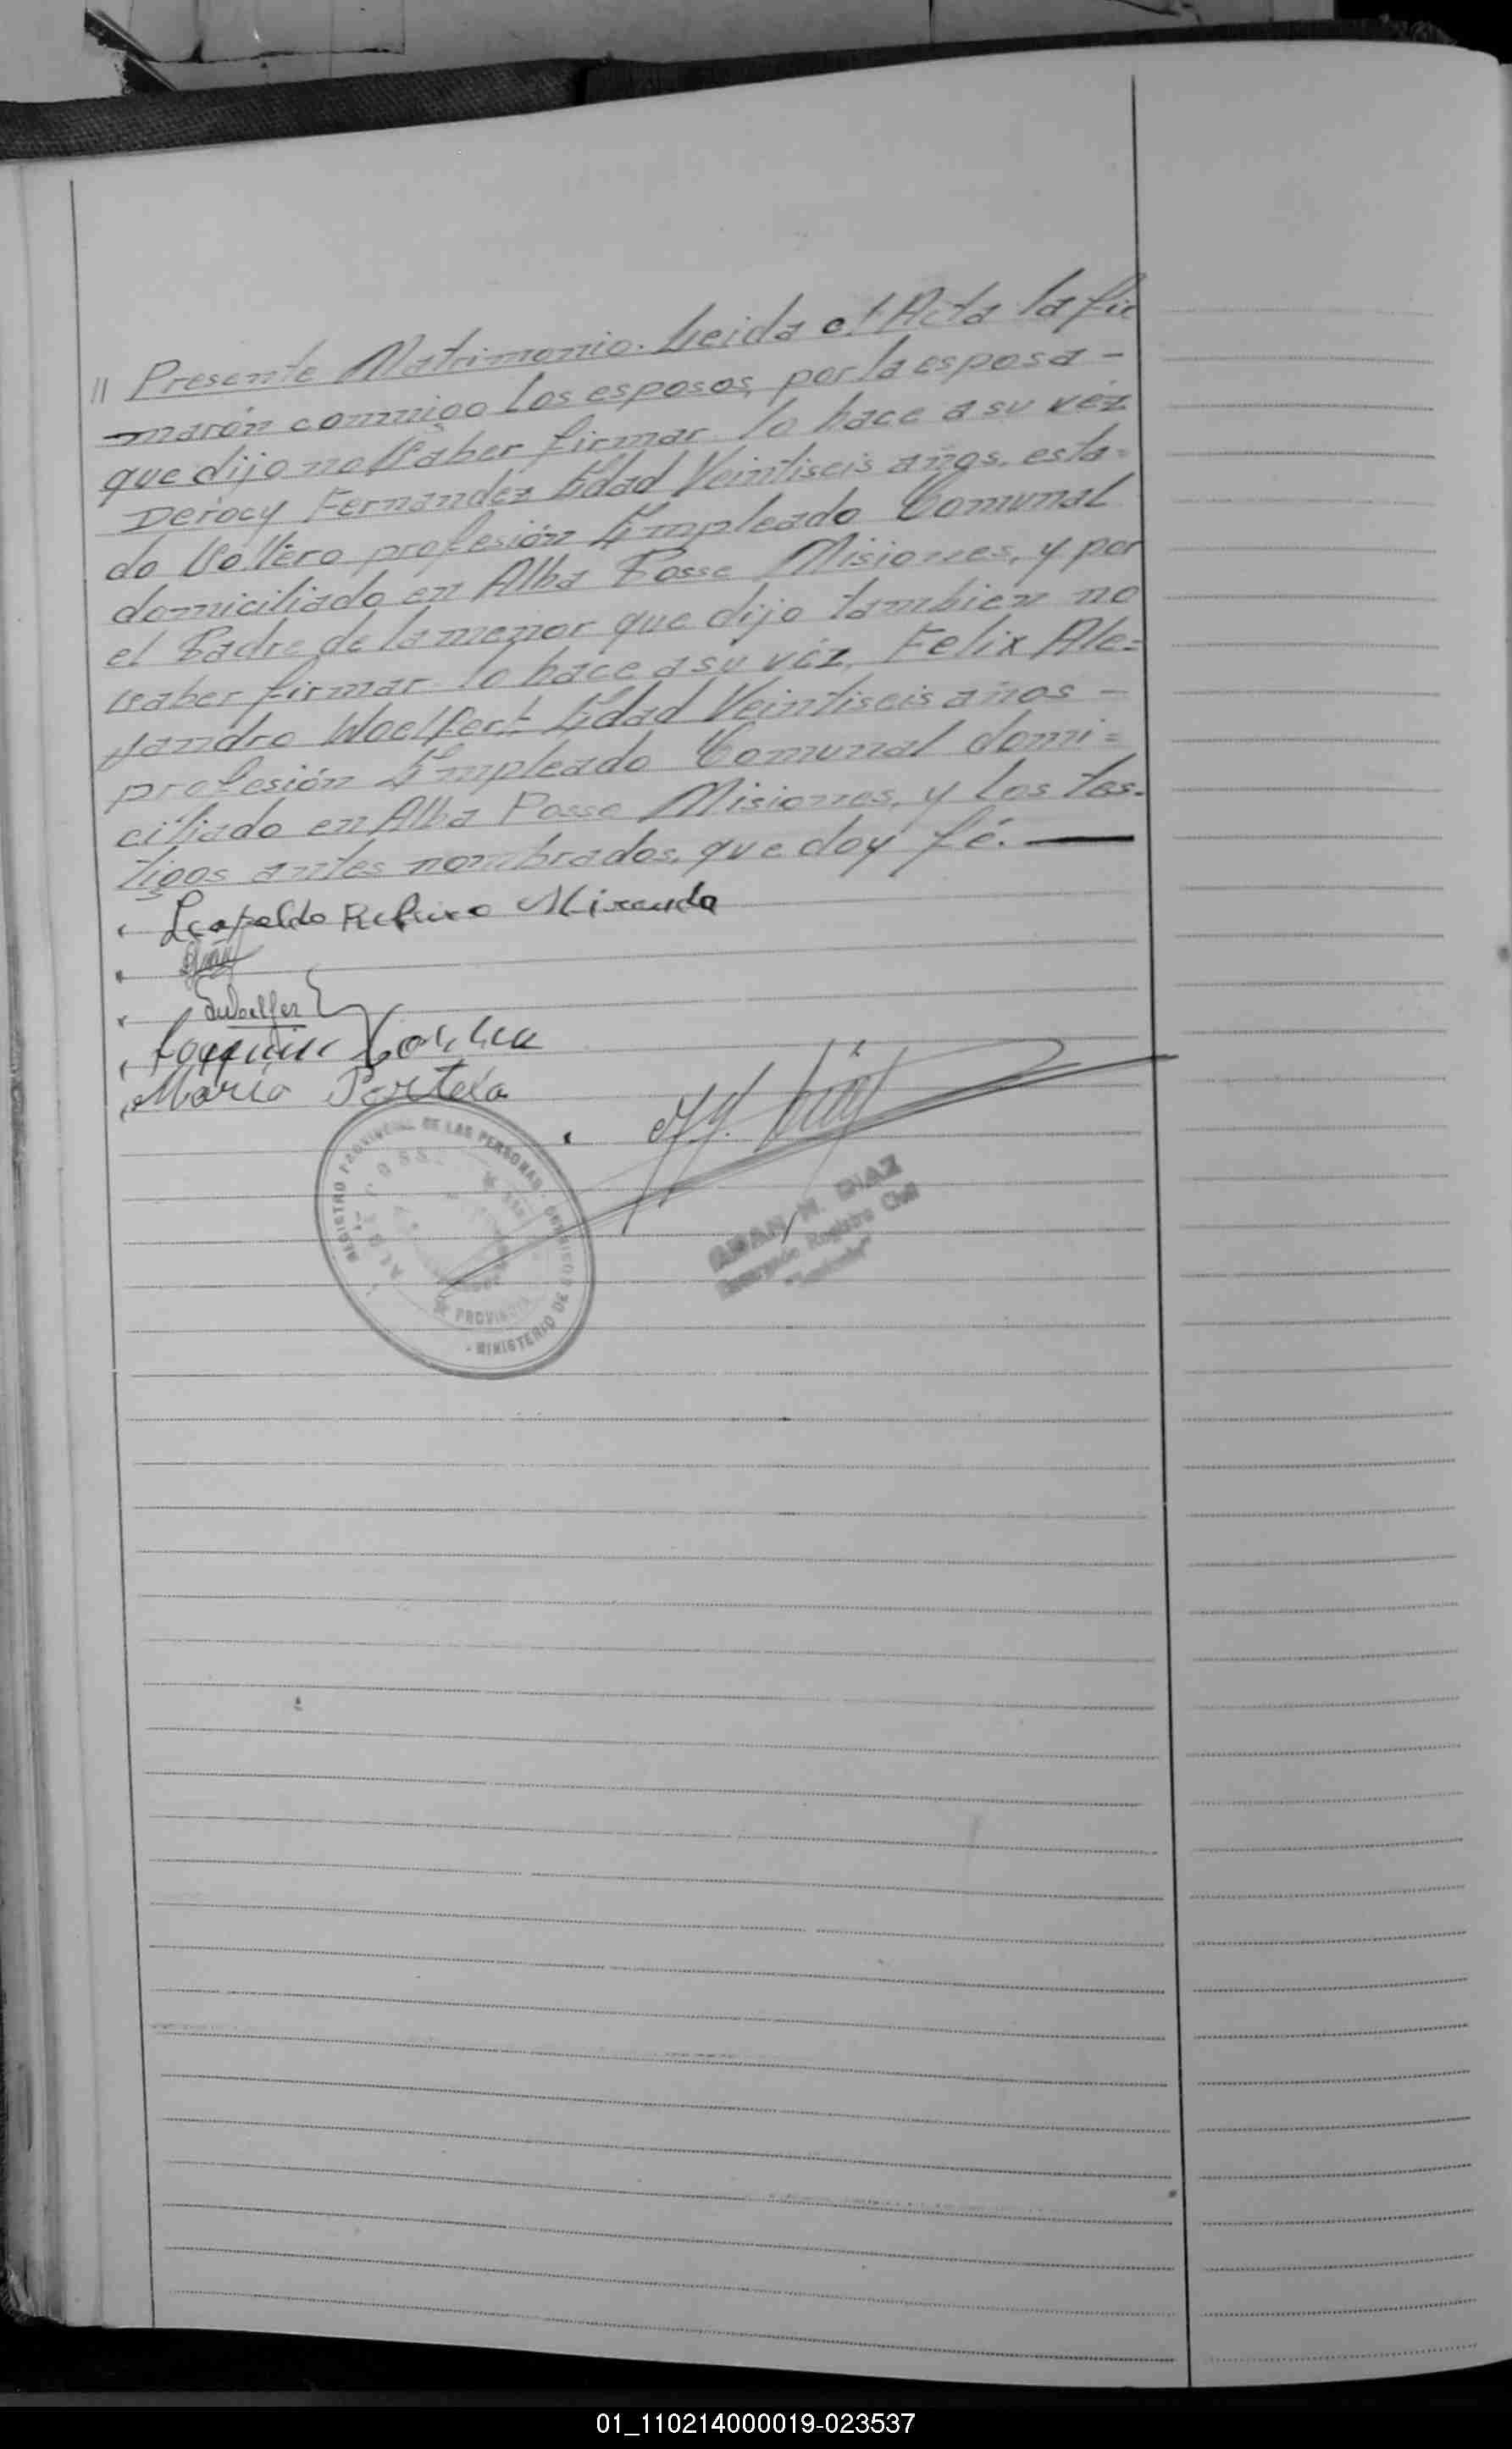 // Presente Matrimonio. Leida el Acta la fir
marón conmigo los esposos, por la esposa -
que dijo no Saber firmar lo hace a su véz
Derocy Fernandez Edad Veintiseis años, esta=
do Soltero profesión Empleado Comunal
domiciliado en Alba Posse Misiones, y por
el Padre de la menor que dijo tambien no
saber firmar lo hace a su véz, Felix Ale=
jandro Woelfert Edad Veintiseis años -
profesión Empleado Comunal domi=
ciliado en Alba Posse Misiones, y los tes-
tigos antes nombrados, que doy fé.
Leopoldo Rufino Miranda
Joaquin
Maria Portela
REGISTRO PROVINCIAL DE LAS PERSONAS
ALBA POSSE
PROVINCIA
MINISTERIO DE
ADAN N. DIAZ
Encargado Registro Civil
01_110214000019-023537